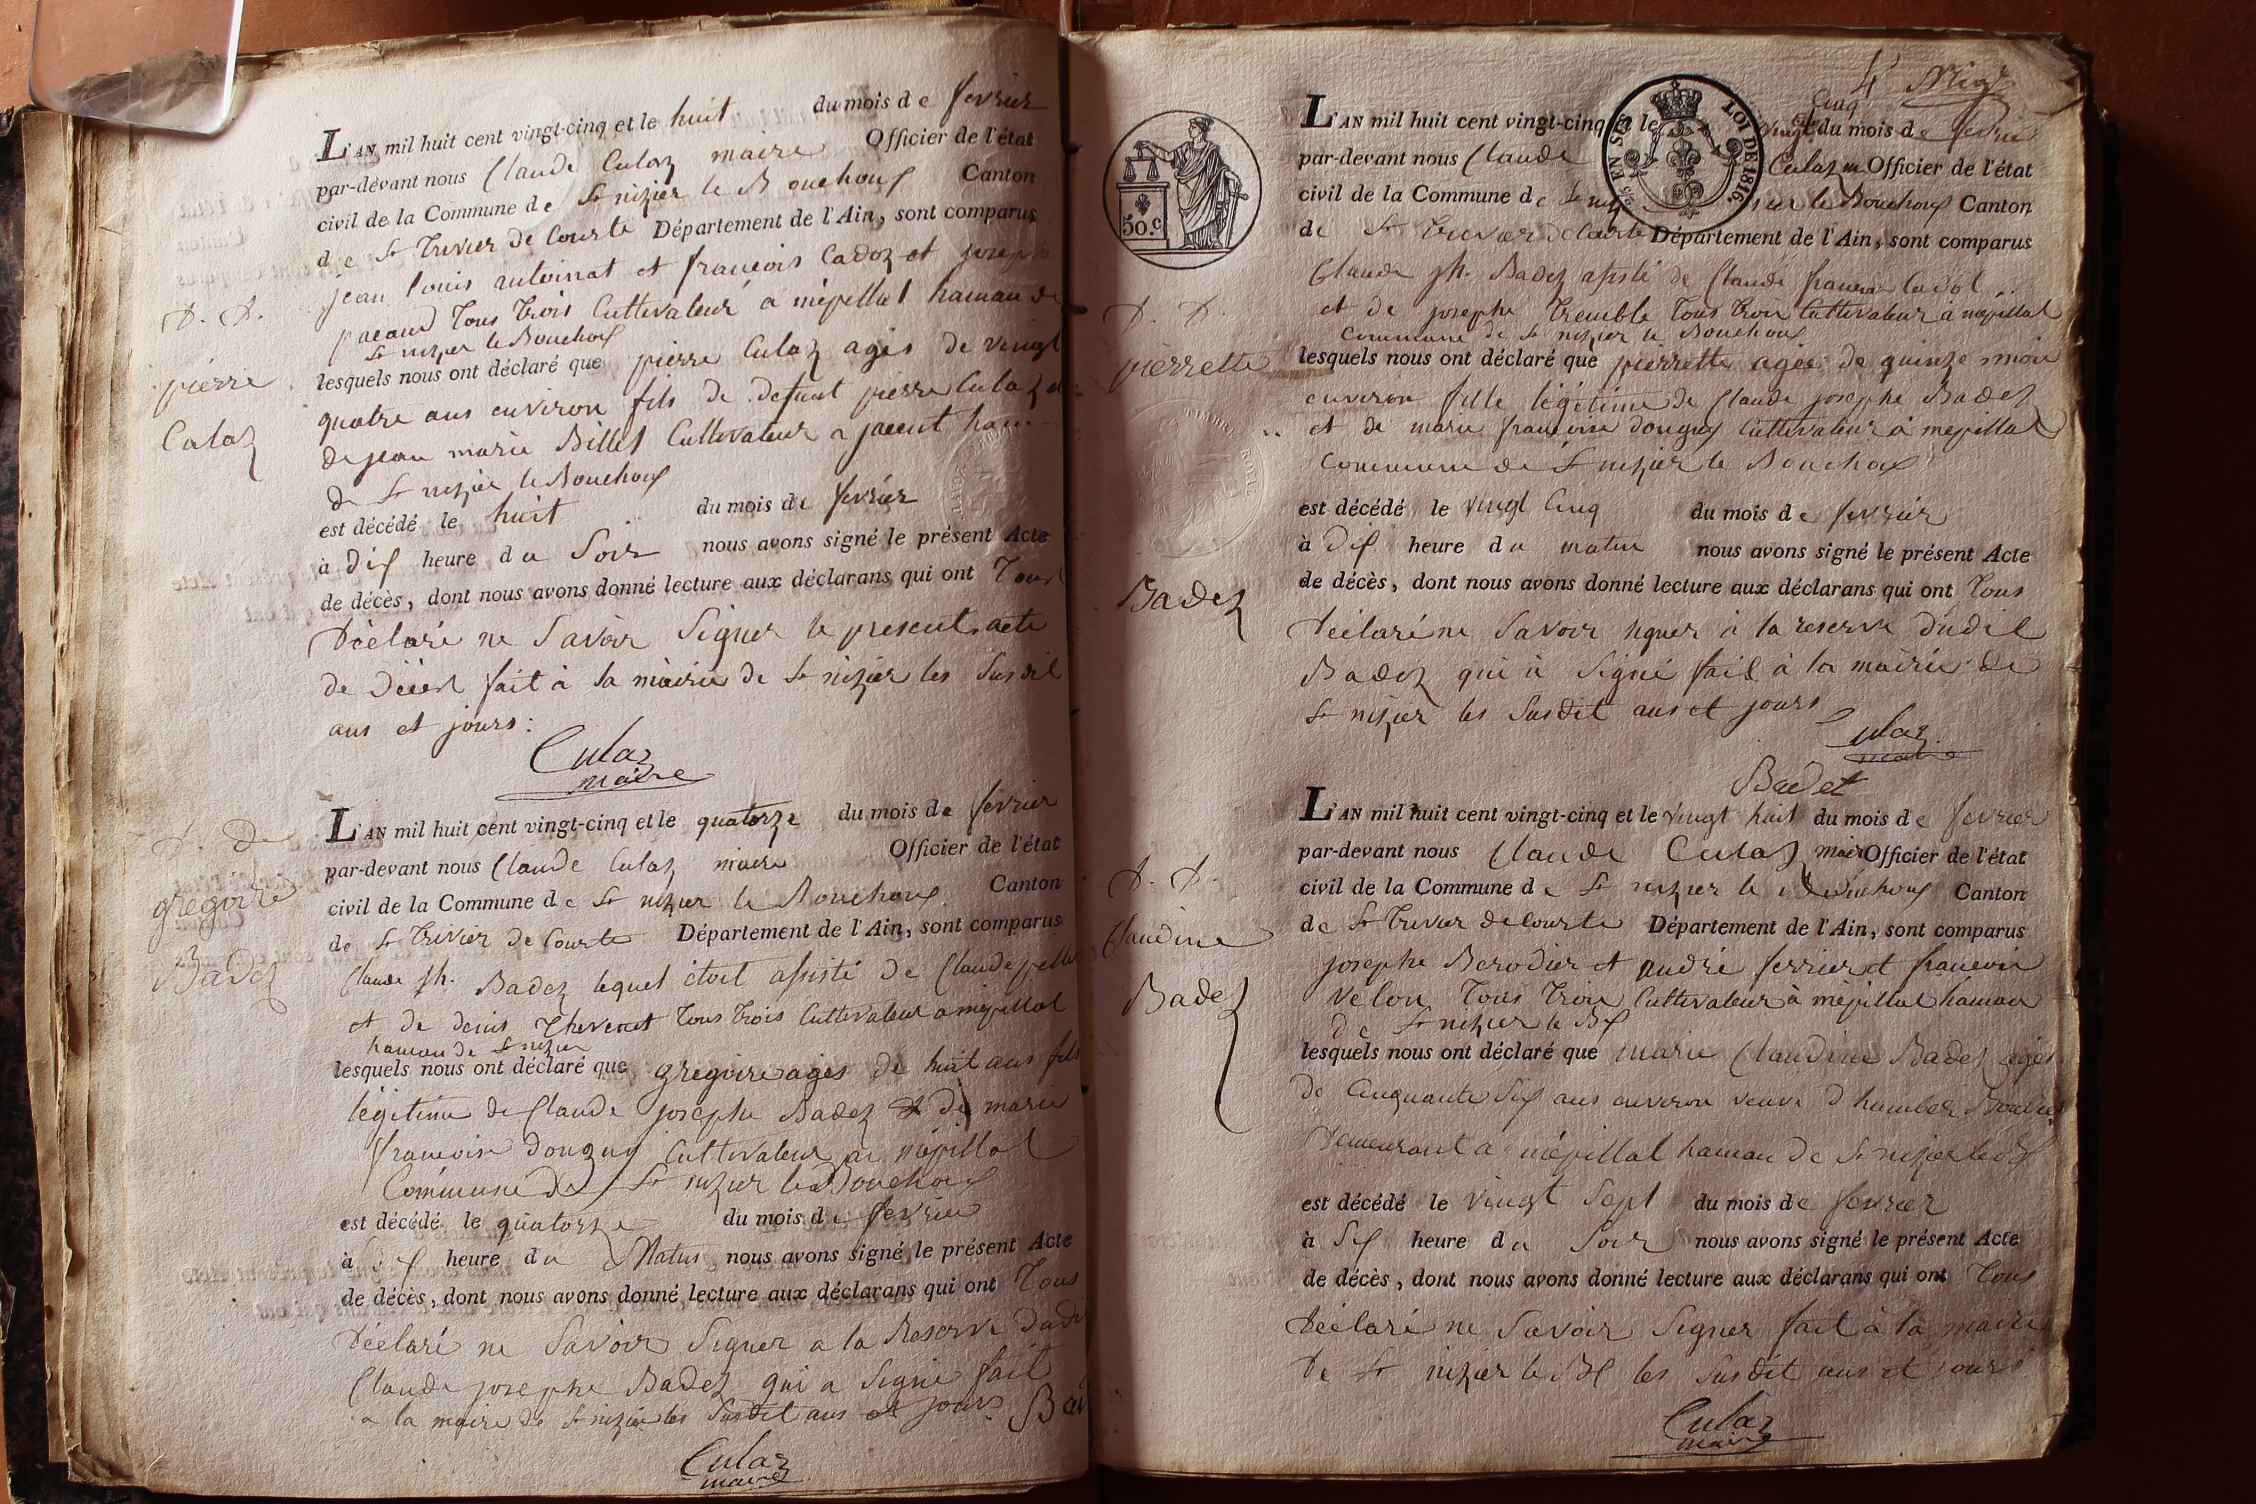 L'AN mil huit cent vingt-cinq et le huit du mois de fevrier
par-devant nous Claude Culaz maire Officier de l'état
civil de la Commune de St nizier le Bouchoux Canton
de St Trivier de Courte Département de l'Ain, sont comparus
jean louis et francois Cadoz et joseph
pacaud Tous trois Cultivateur a mépillat hamau de
St nizier le Bouchoux
D. D.
pierre
Culaz
lesquels nous ont déclaré que pierre Culaz agés de vingt
quatre ans environ fils de defunt pierre Culaz et
de jean marie Billet Cultivateur a jacent ham
de St nizier le Bouchoux
est décédé le huit du mois de fevrier
à dix heure du Soir nous avons signé le présent Acte
de décès, dont nous avons donné lecture aux déclarans qui ont Tous
Déclaré ne Savoir Signer le present acte
de décest fait à la mairie de St nizier les Susdit
ans et jours:
Culaz
maire
L'AN mil huit cent vingt-cinq et le quatorze du mois de fevrier
par-devant nous Claude Culaz maire Officier de l'état
civil de la Commune de St nizier le Bouchoux Canton
de St Trivier de Courte Département de l'Ain, sont comparus
D. de
gregoire
Badez
Claude jh. Badez lequel étoit assisté de Claude
et de denis Thevenet Tous trois Cultivateur a mépillat
hamau de St nizier
lesquels nous ont déclaré que gregoire agés de huit ans fils
légitime de Claude josephe Badez et de marie
francoise Douguy Cultivateur a mépillat
Commune de St nizier le Bouchoux
est décédé le quatorze du mois de fevrier
à heure du Matin nous avons signé le présent Acte
de décès, dont nous avons donné lecture aux déclarans qui ont Tous
Déclaré ne Savoir Signer a la Reserve dudit
Claude josephe Badez qui a Signé fait
a la maire de St nizier les Susdit ans et jours
Culaz
maire
4
LOI DE 1816.
50.c
L'AN mil huit cent vingt-cinq et le vingt Cinq du mois de fevrier
par-devant nous Claude Culaz m Officier de l'état
civil de la Commune de St nizier le Bouchoux Canton
de St Trivier de Courte Département de l'Ain, sont comparus
Claude jh. Badez assisté de Claude francois Cadot
et de josephe Tremble Tous trois Cultivateur à mépillat
Commune de St nizier le Bouchoux
D. D.
pierrette
Badez
lesquels nous ont déclaré que pierrette agée de quinze mois
environ fille légitime de Claude josephe Badez
et de marie francoise douguy Cultivateur à mepillat
Commune de St nizier le Bouchoux
est décédé le vingt Cinq du mois de fevrier
à Dix heure du matin nous avons signé le présent Acte
de décès, dont nous avons donné lecture aux déclarans qui ont Tous
Déclaré ne Savoir signer à la reserve dudit
Badez qui à Signé fait à la mairie de
St nizier les Susdit ans et jours
Culaz
maire
Badet
L'AN mil huit cent vingt-cinq et le vingt huit du mois de fevrier
par-devant nous Claude Culaz maire Officier de l'état
civil de la Commune de St nizier le Bouchoux Canton
de St Trivier de Courte Département de l'Ain, sont comparus
D. D.
Claudine
Badez
josephe Berodier et andré ferrier et francois
Velon Tous trois Cultivateur à mépillat hamau
de St nizier le Bx
lesquels nous ont déclaré que marie Claudine Badez agés
de Cinquante Six ans environ veuve d'humber
Demeurant a mépillat hamau de St nizier le Bx
est décédé le vingt Sept du mois de fevrier
à Six heure du Soir nous avons signé le présent Acte
de décès, dont nous avons donné lecture aux déclarans qui ont Tous
Déclaré ne Savoir Signer fait à la mairie
De St nizier le Bx les Susdit ans et jours
Culaz
maire